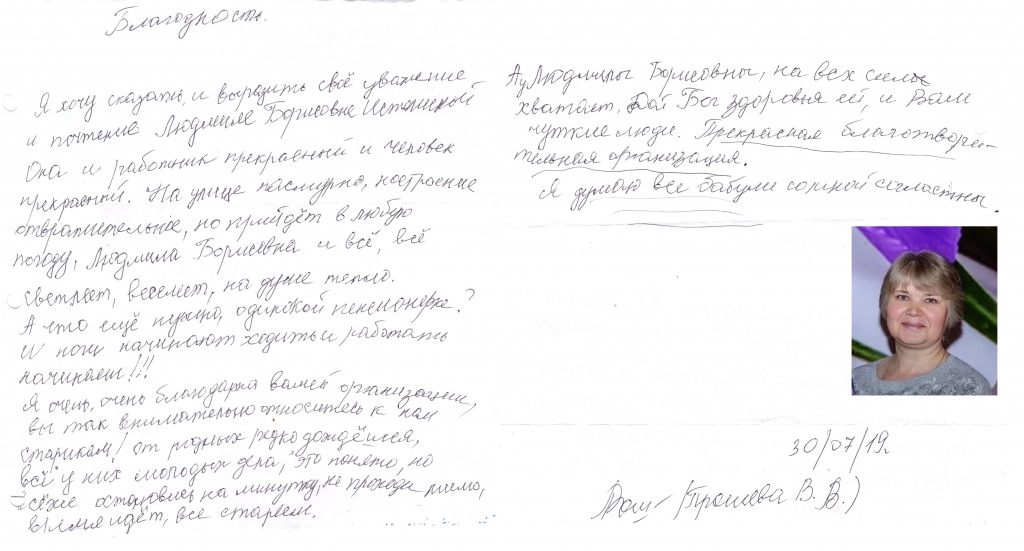 Благодность.
Я хочу сказать, и выразить своё уважение
и почтение Людмиле Борисовне
Она и работник прекрасный и человек
прекрасный. На улице пасмурно, настроение
отвратительное, но прийдёт в любую
погоду, Людмила Борисовна и всё, всё
светлеет, веселеет, на душе тепло.
А что ещё нужно, одинокой пенсионерке?
И ноги начинают ходить и работать
начинаем!!!
Я очень, очень благодарна вашей организации,
вы так внимательно относитесь к нам
старикам! от родных редко дождёшся,
всё у них молодых дела, это понято, но
всёже остановись на минутку, не проходи мимо,
время идёт, все стареем.
А у Людмилы Борисовны, на всех силы
хватает, Дай Бог здоровья ей, и Вам
чуткие люди. Прекрасная благотворй-
тельная организация.
Я думаю все бабули со мной согластны.
30/07/19г
(Прошева В. В.)